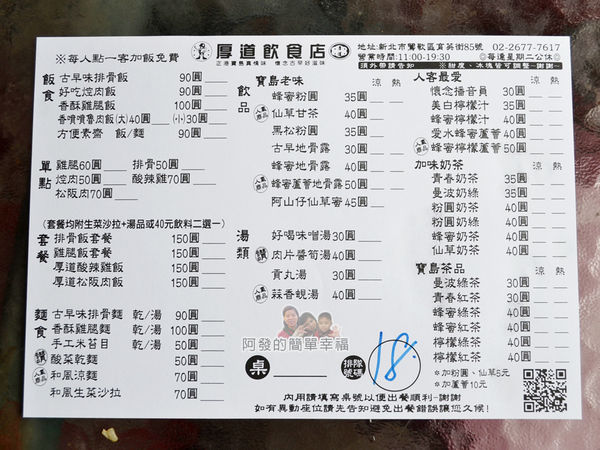 ※每人點一客加飯免費
厚道飲食店
正港寶島真情味 懷念古早好滋味
地址:新北市鶯歌區育英街85號 02-2677-7617
營業時間:11:00-19:30 ◎每逢星期二公休◎
須外帶請告知 ※甜度、冰塊皆可調整~謝謝~
飯食
古早味排骨飯 90圓
好吃焢肉飯 90圓
香酥雞腿飯 100圓
香噴噴魯肉飯(大)40圓 (小)30圓
方便素齋 飯/麵 90圓
單點
雞腿60圓 排骨50圓
焢肉50圓 酸辣雞70圓
松阪肉70圓
(套餐均附生菜沙拉+湯品或40元飲料二選一)
套餐
排骨飯套餐 150圓
雞腿飯套餐 150圓
厚道酸辣雞飯 150圓
厚道松阪肉飯 150圓
麵食
古早味排骨麵 乾/湯 90圓
香酥雞腿麵 乾/湯 100圓
手工米苔目 乾/湯 50圓
讚 酸菜乾麵 50圓
人氣商品 和風涼麵 70圓
和風生菜沙拉 70圓
飲品
寶島老味 涼 熱
蜂蜜粉圓 35圓
人氣商品 仙草甘茶 40圓
黑松粉圓 35圓
古早地骨露 30圓
蜂蜜地骨露 40圓
人氣商品 蜂蜜蘆薈地骨露50圓
阿山仔仙草蜜 45圓
湯類
好喝味噌湯30圓
讚 肉片醬筍湯40圓
貢丸湯 30圓
人氣商品 蒜香蜆湯 40圓
人客最愛 涼 熱
懷念播音員 30圓
美白檸檬汁 35圓
蜂蜜檸檬汁 40圓
愛水蜂蜜蘆薈40圓
人氣商品 蜂蜜檸檬蘆薈50圓
加味奶茶 涼 熱
青春奶茶 35圓
曼波奶綠 35圓
粉圓奶茶 40圓
蜂蜜奶茶 40圓
仙草奶茶 40圓
寶島茶品 涼 熱
曼波綠茶 30圓
青春紅茶 30圓
蜂蜜綠茶 40圓
蜂蜜紅茶 40圓
檸檬綠茶 40圓
檸檬紅茶 40圓
※加粉圓、仙草5元
※加蘆薈10元
阿發的簡單幸福
桌
排隊號碼
18.
內用請填寫桌號以便出餐順利~謝謝
如有異動座位請先告知避免出餐錯誤讓您久候!